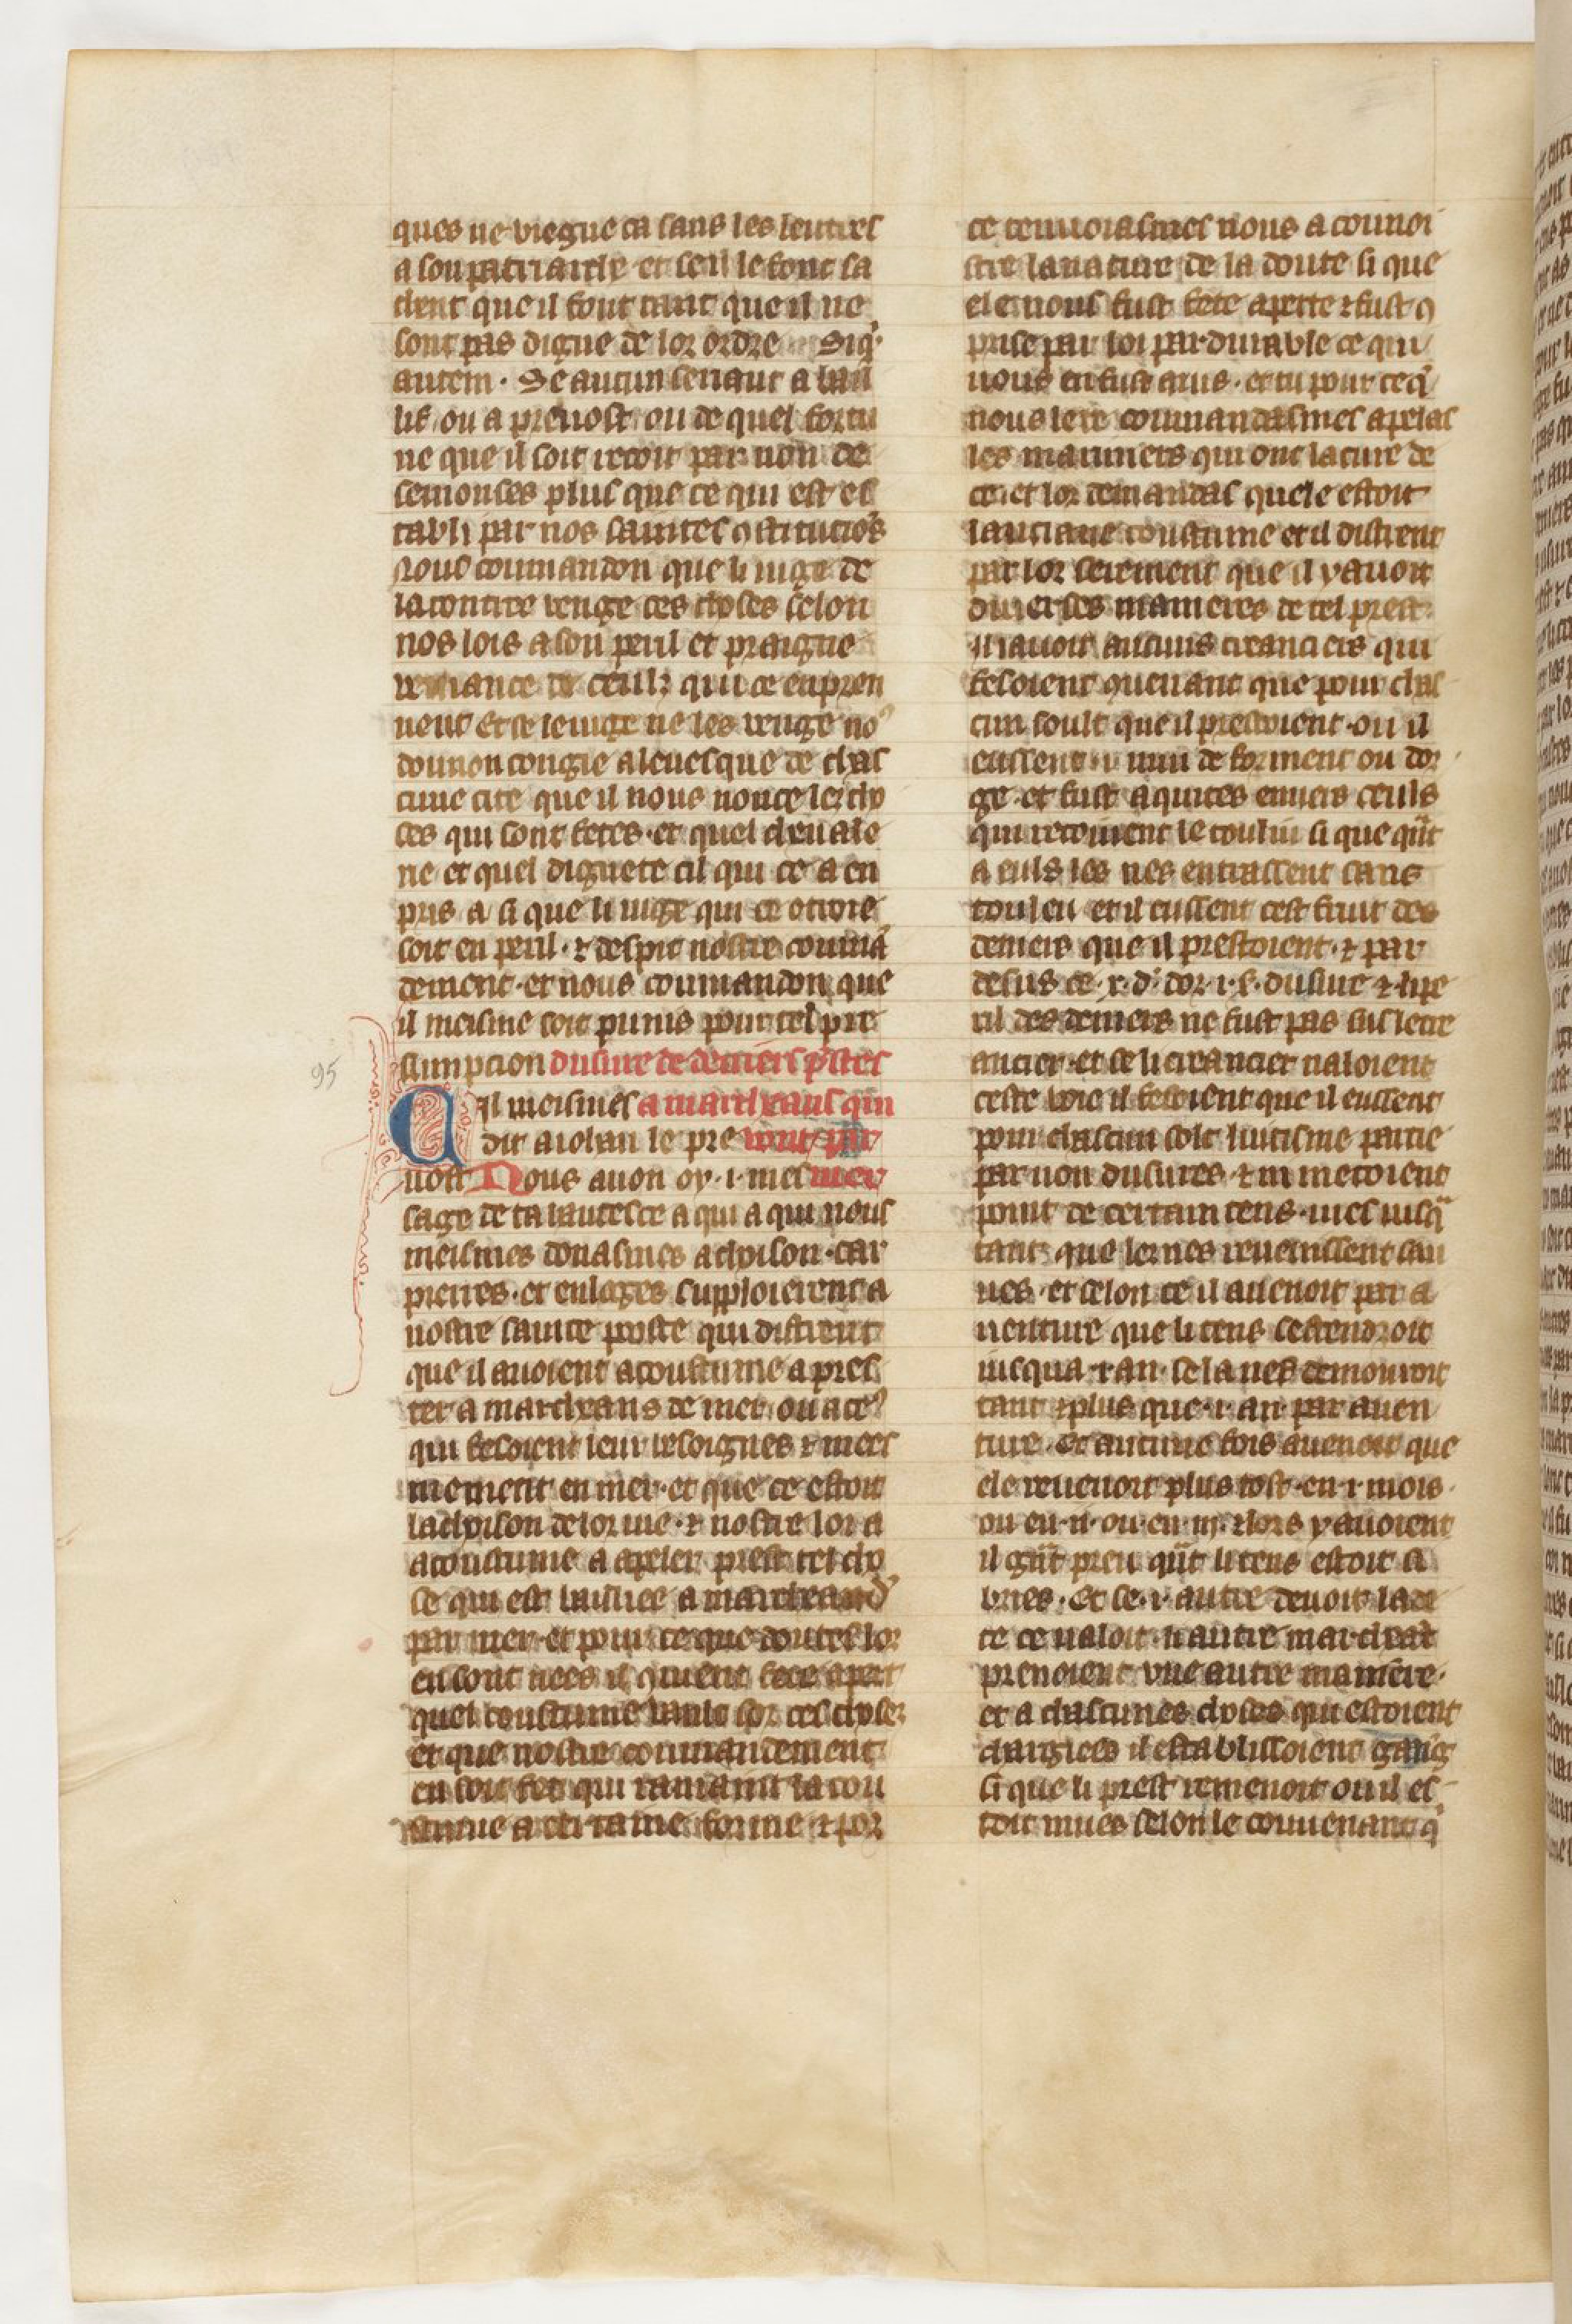 ques ne viegne ca sans les lentres
a son patriarche et seil le font sa
chent que il font tant que il ne
sont pas digne de lor ordre Siq̄
autem . Se aucun seriant a bail
lif ou a prevost ou de quel fortu
ne que il soit recoit par non de
semonses plus que ce qui est es
tabli par nos saintes ꝯstitucios
nous coumandon que li iuge de
la contree venge ces choses selon
nos lois a son peril et praigne
veniance de ceulz qui ce enpren
nent Et se le iuge ne les venge noꝰ
dounon congie a levesque de chas
cune cite que il nous nonce les cho
ses qui sont fetes . et quel chevale
ne et quel dignete cil qui ce a en
pris a si que li iuge qui ce otroie
soit en peril . ⁊ despit nostre coumā
dement . et nous coumandon que
il meisme soit punis pour tel pre
sumpcion dusure de deniers p̄stes
Cil meismes a marcheans qui
dit a iohan le pre vont par
vost Nous avon oy . i . mes mer
sage de ta hautesce a qui a qui nous
meismes donasmes achoison . car
pierres . et euloges supploierent a
nostre sainte poste qui distrent
que il avoient acoustume a pres
ter a marcheans de mer ou a ceꝰ
qui fesoient leur besoignes ⁊ mees
mement en mer . et que ce estoit
lachoison de lor vie . ⁊ nostre loi a
acoustume a apeler prest tel cho
se qui est bailliee a marcheand
par mer . et pour ce que doutes lor
en sont nees il quient fere apert
quel coustume vaille sor ces choses
et que nostre coumandement
en soit fet qui ramaint la cou
stume a certaine forme ⁊ por
ce tenvoiasmes nous a counoi
stre la nature de la doute si que
ele nous fust fete aperte ⁊ fust ꝯ
prise par loi pardurable ce qui
nous en fust avis . et tu pour ce q̄
nous le te coumandasmes apelas
les mariniers qui ont la cure de
ce . et lor demandas quele estoit
lanciane coustume et il distrent
par lor serement que il y avoit
diverses manieres de tel prest .
il i avoit aucuns creanciers qui
fesoient quenant que pour chas
cun soult que il prestoient . ou il
eussent . i . mui de forment ou dor
ge . et fust aquites envers ceuls
qui recoivent le toulin si que q̄nt
a euls les nes entrassent sans
touleu et il eussent cest fruit des
deniers que il prestoient . ⁊ par
desus ce . x . d . dor . i . s . dusure ⁊ li pe
ril des deniers ne fust pas sus le cre
ancier . et se li creancier naloient
ceste voie il fesoient que il eussent
pour chascun solt luitisme partie
par non dusures . ⁊ ni metoient
point de certain tens . mes iusq̄
tant que les nes revenissent sau
ves . et selon ce il avenoit par a
venture que li tens sestendroit
iusqua . i . an . se la nef demouroit
tant ⁊ plus que . i . an . par aven
ture . Et aucune fois avenoit que
ele revenoit plus tost . en . i . mois .
ou en . ii . ou en . iii . ⁊ lors y avoient
il grāt preu q̄nt li tens estoit si
bries . Et se . i . autre devoit la det
te ce valoit . li autre marcheāt
prenoient une autre maniere .
et a chascunes choses qui estoient
chargiees il establissoient gaāg
si que li prest remenoit ou il es
toit mues selon le couvenant q̄